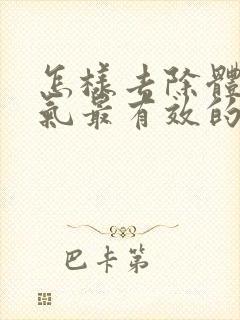 怎樣去除體
氣最有效的
巴卡第